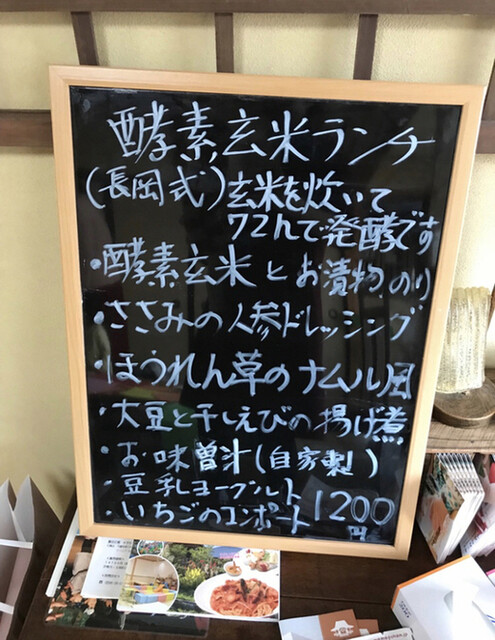 酵素玄米ランチ
(長岡式)玄米を炊いて
72hで発酵です
・酵素玄米とお漬物のり
・ささみの人参ドレッシング
・ほうれん草のナムル風
・大豆と干しえびの揚げ煮
・お味噌汁(自家製)
・豆乳ヨーグルト
・いちごのコンポート 1200円